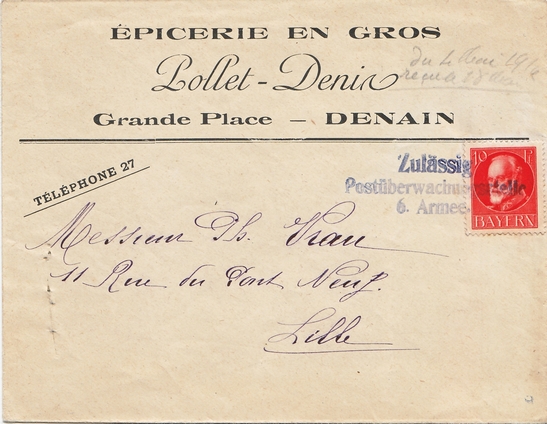 ÉPICERIE EN GROS
Pollet-Denis
Grande Place – DENAIN
du 4 Mai 191
reçu le 28
TÉLÉPHONE 27
Zulässig
Postüberwachungsstelle
6. Armee
10 Pf
BAYERN
Messieurs Ph. Vrau
11 Rue du Pont Neuf.
Lille